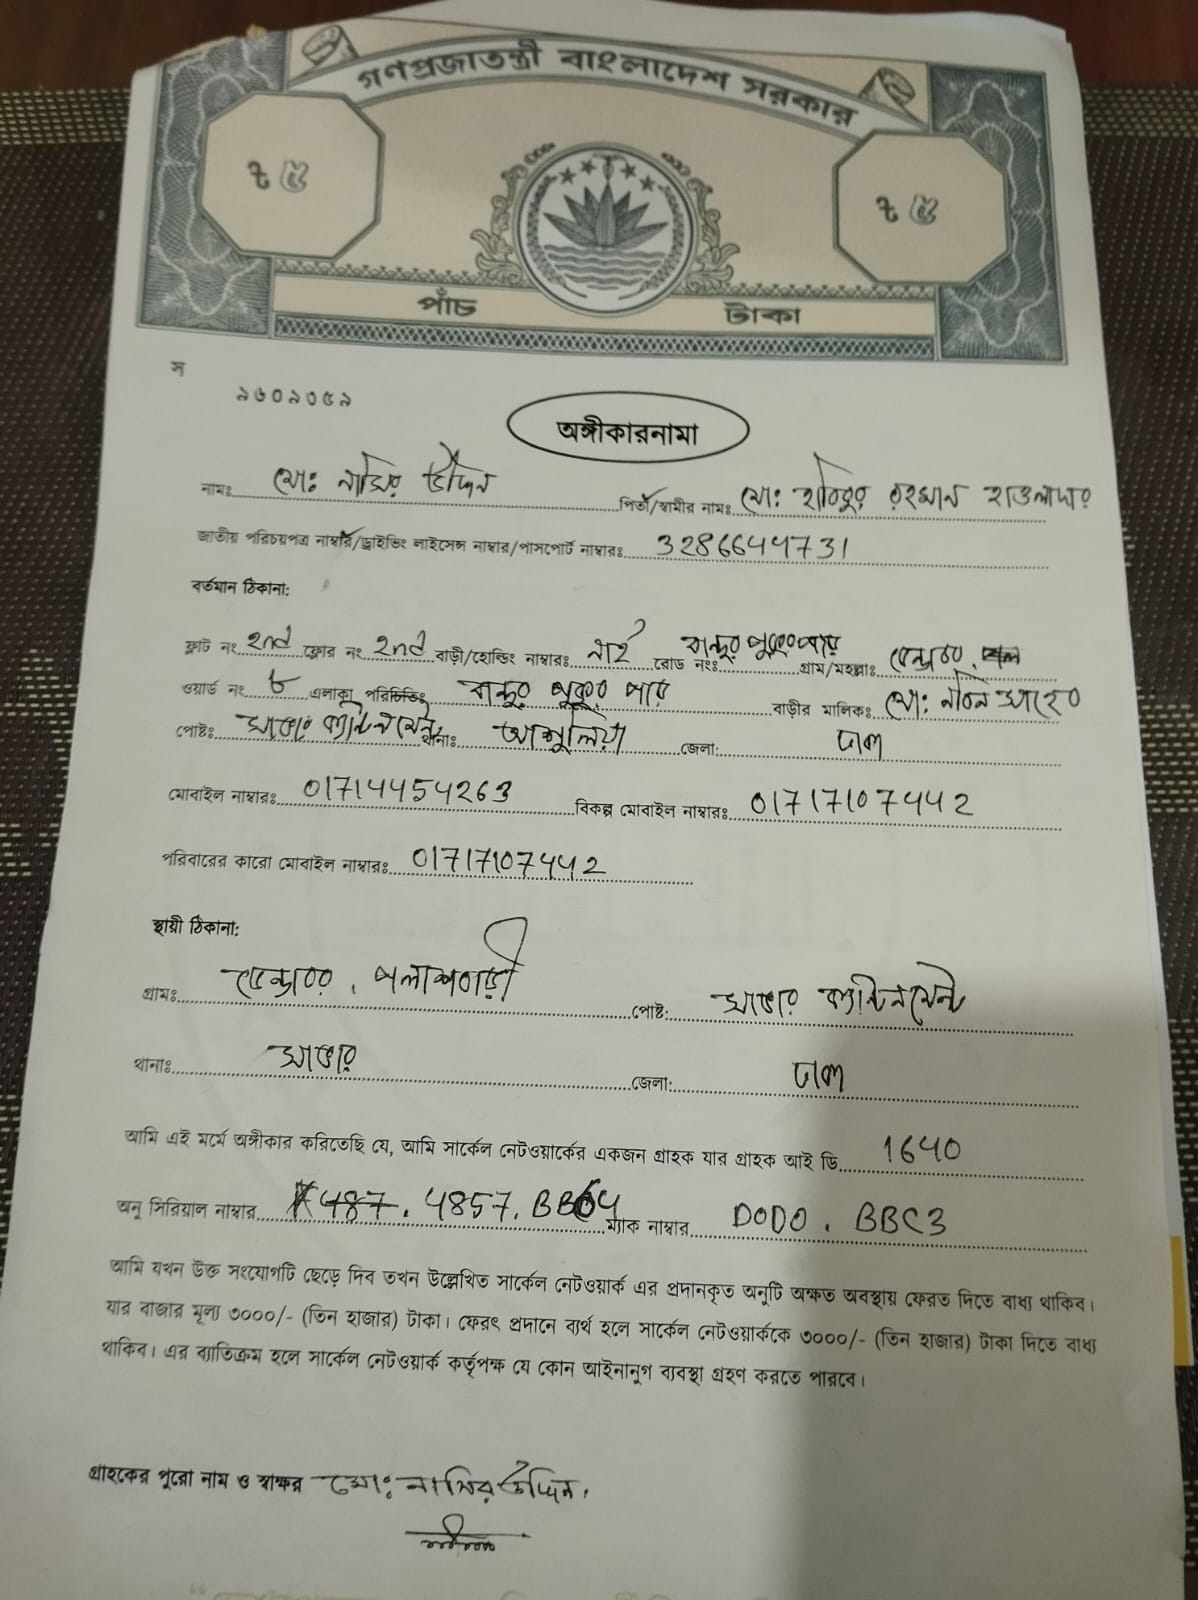 গণপ্রজাতন্ত্রী বাংলাদেশ সরকার
৳ ৫ ৳ ৫
পাঁচ টাকা
স
৯৬০৯৩৫৯
অঙ্গীকারনামা
নামঃ মোঃ নাসির উদ্দিন পিতা/স্বামীর নামঃ মোঃ হাবিবুর রহমান হাওলাদার
জাতীয় পরিচয়পত্র নাম্বার/ড্রাইভিং লাইসেন্স নাম্বার/পাসপোর্ট নাম্বারঃ 3286649731
বর্তমান ঠিকানা:
ফ্লাট নং 2nd ফ্লোর নং 2nd বাড়ী/হোল্ডিং নাম্বারঃ নাই রোড নংঃ পুকুর পার গ্রাম/মহল্লাঃ
ওয়ার্ড নং ৮ এলাকা পরিচিতিঃ পুকুর পার বাড়ীর মালিকঃ মোঃ
পোষ্টঃ সাভার ক্যান্টনমেন্ট থানাঃ আশুলিয়া জেলা: ঢাকা
মোবাইল নাম্বারঃ 01714454263 বিকল্প মোবাইল নাম্বারঃ 01717107442
পরিবারের কারো মোবাইল নাম্বারঃ 01717107442
স্থায়ী ঠিকানা:
গ্রামঃ পলাশবাড়ী পোষ্ট: সাভার ক্যান্টনমেন্ট
থানাঃ সাভার জেলা: ঢাকা
আমি এই মর্মে অঙ্গীকার করিতেছি যে, আমি সার্কেল নেটওয়ার্কের একজন গ্রাহক যার গ্রাহক আই ডি 1640
অনু সিরিয়াল নাম্বার 4857. ম্যাক নাম্বার D0D0. BBC3
আমি যখন উক্ত সংযোগটি ছেড়ে দিব তখন উল্লেখিত সার্কেল নেটওয়ার্ক এর প্রদানকৃত অনুটি অক্ষত অবস্থায় ফেরত দিতে বাধ্য থাকিব।
যার বাজার মূল্য ৩০০০/- (তিন হাজার) টাকা। ফেরৎ প্রদানে ব্যর্থ হলে সার্কেল নেটওয়ার্ককে ৩০০০/- (তিন হাজার) টাকা দিতে বাধ্য
থাকিব। এর ব্যতিক্রম হলে সার্কেল নেটওয়ার্ক কর্তৃপক্ষ যে কোন আইনানুগ ব্যবস্থা গ্রহণ করতে পারবে।
গ্রাহকের পুরো নাম ও স্বাক্ষর মোঃ নাসির উদ্দিন।